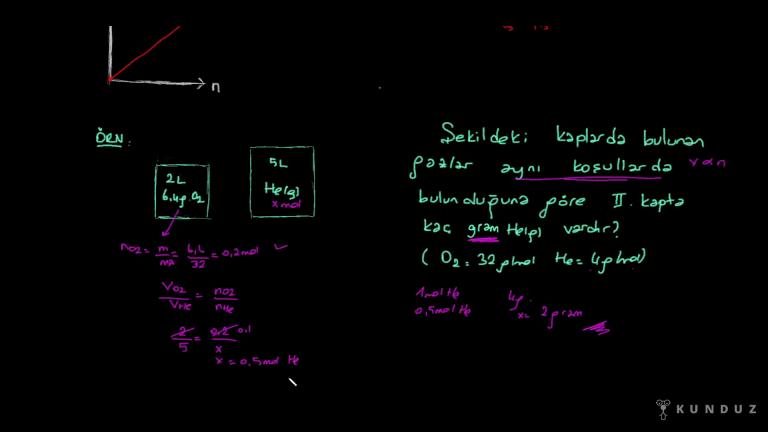 n
ÖRN:
2L
6,4g O₂
5L
He(g)
x mol
nO₂ = m/mA = 6,4/32 = 0,2 mol
VO₂/VHe = nO₂/nHe
2/5 = 0,2/x 0,1
x = 0,5 mol He
Şekildeki kaplarda bulunan
gazlar aynı koşullarda V α n
bulunduğuna göre II. kapta
kaç gram He(g) vardır?
(O₂ = 32 g/mol He = 4 g/mol)
1 mol He 4g.
0,5 mol He x = 2 gram
KUNDUZ